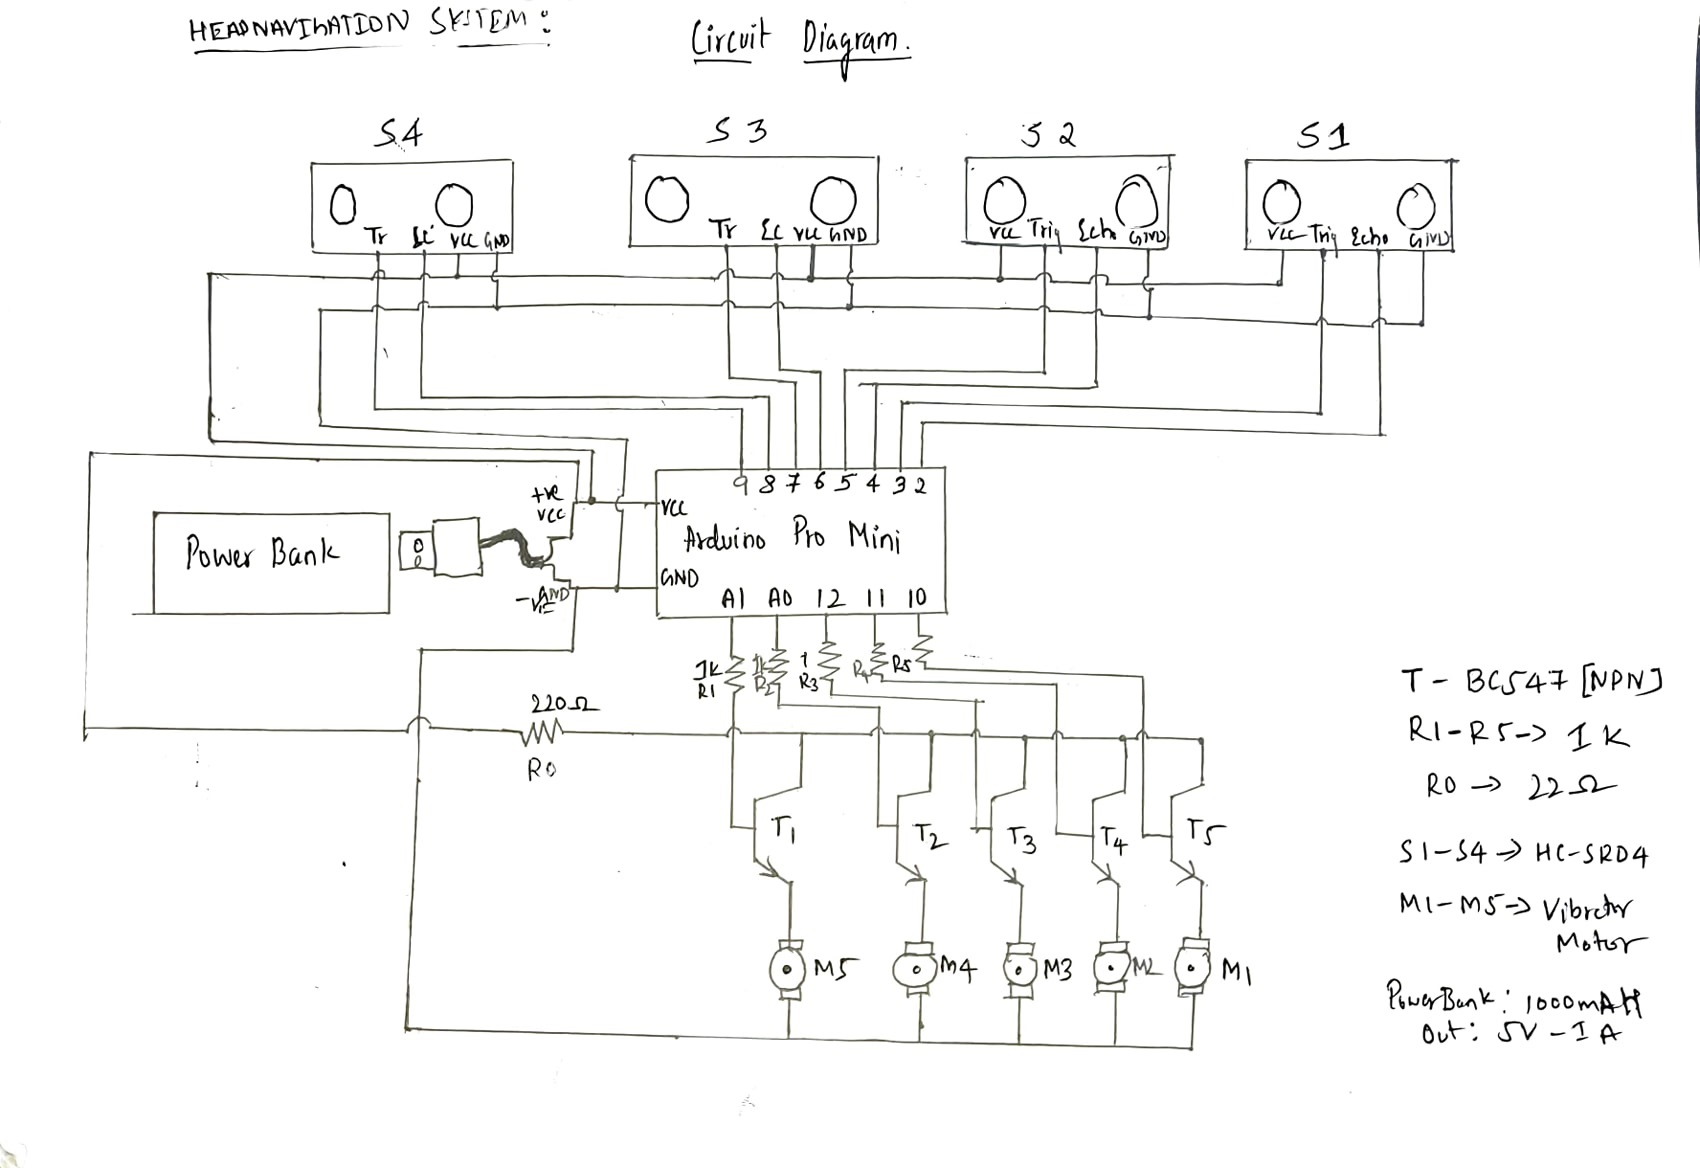 HEADNAVIGATION SYSTEM:
Circuit Diagram.
S4
S3
S2
S1
Tr Ec VCC GND
Tr Ec VCC GND
VCC Trig Echo GND
VCC Trig Echo GND
9 8 7 6 5 4 3 2
+ve
VCC
VCC
Arduino Pro Mini
Power Bank
GND
GND
-ve
A1 A0 12 11 10
1K
R1
1K
R2
1
R3
R4
R5
220Ω
R0
T1
T2
T3
T4
T5
M5
M4
M3
M2
M1
T - BC547 [NPN]
R1-R5-> 1K
R0 -> 22Ω
S1-S4 -> HC-SR04
M1-M5-> Vibrator
Motor
PowerBank: 1000mAH
Out: 5V-1A